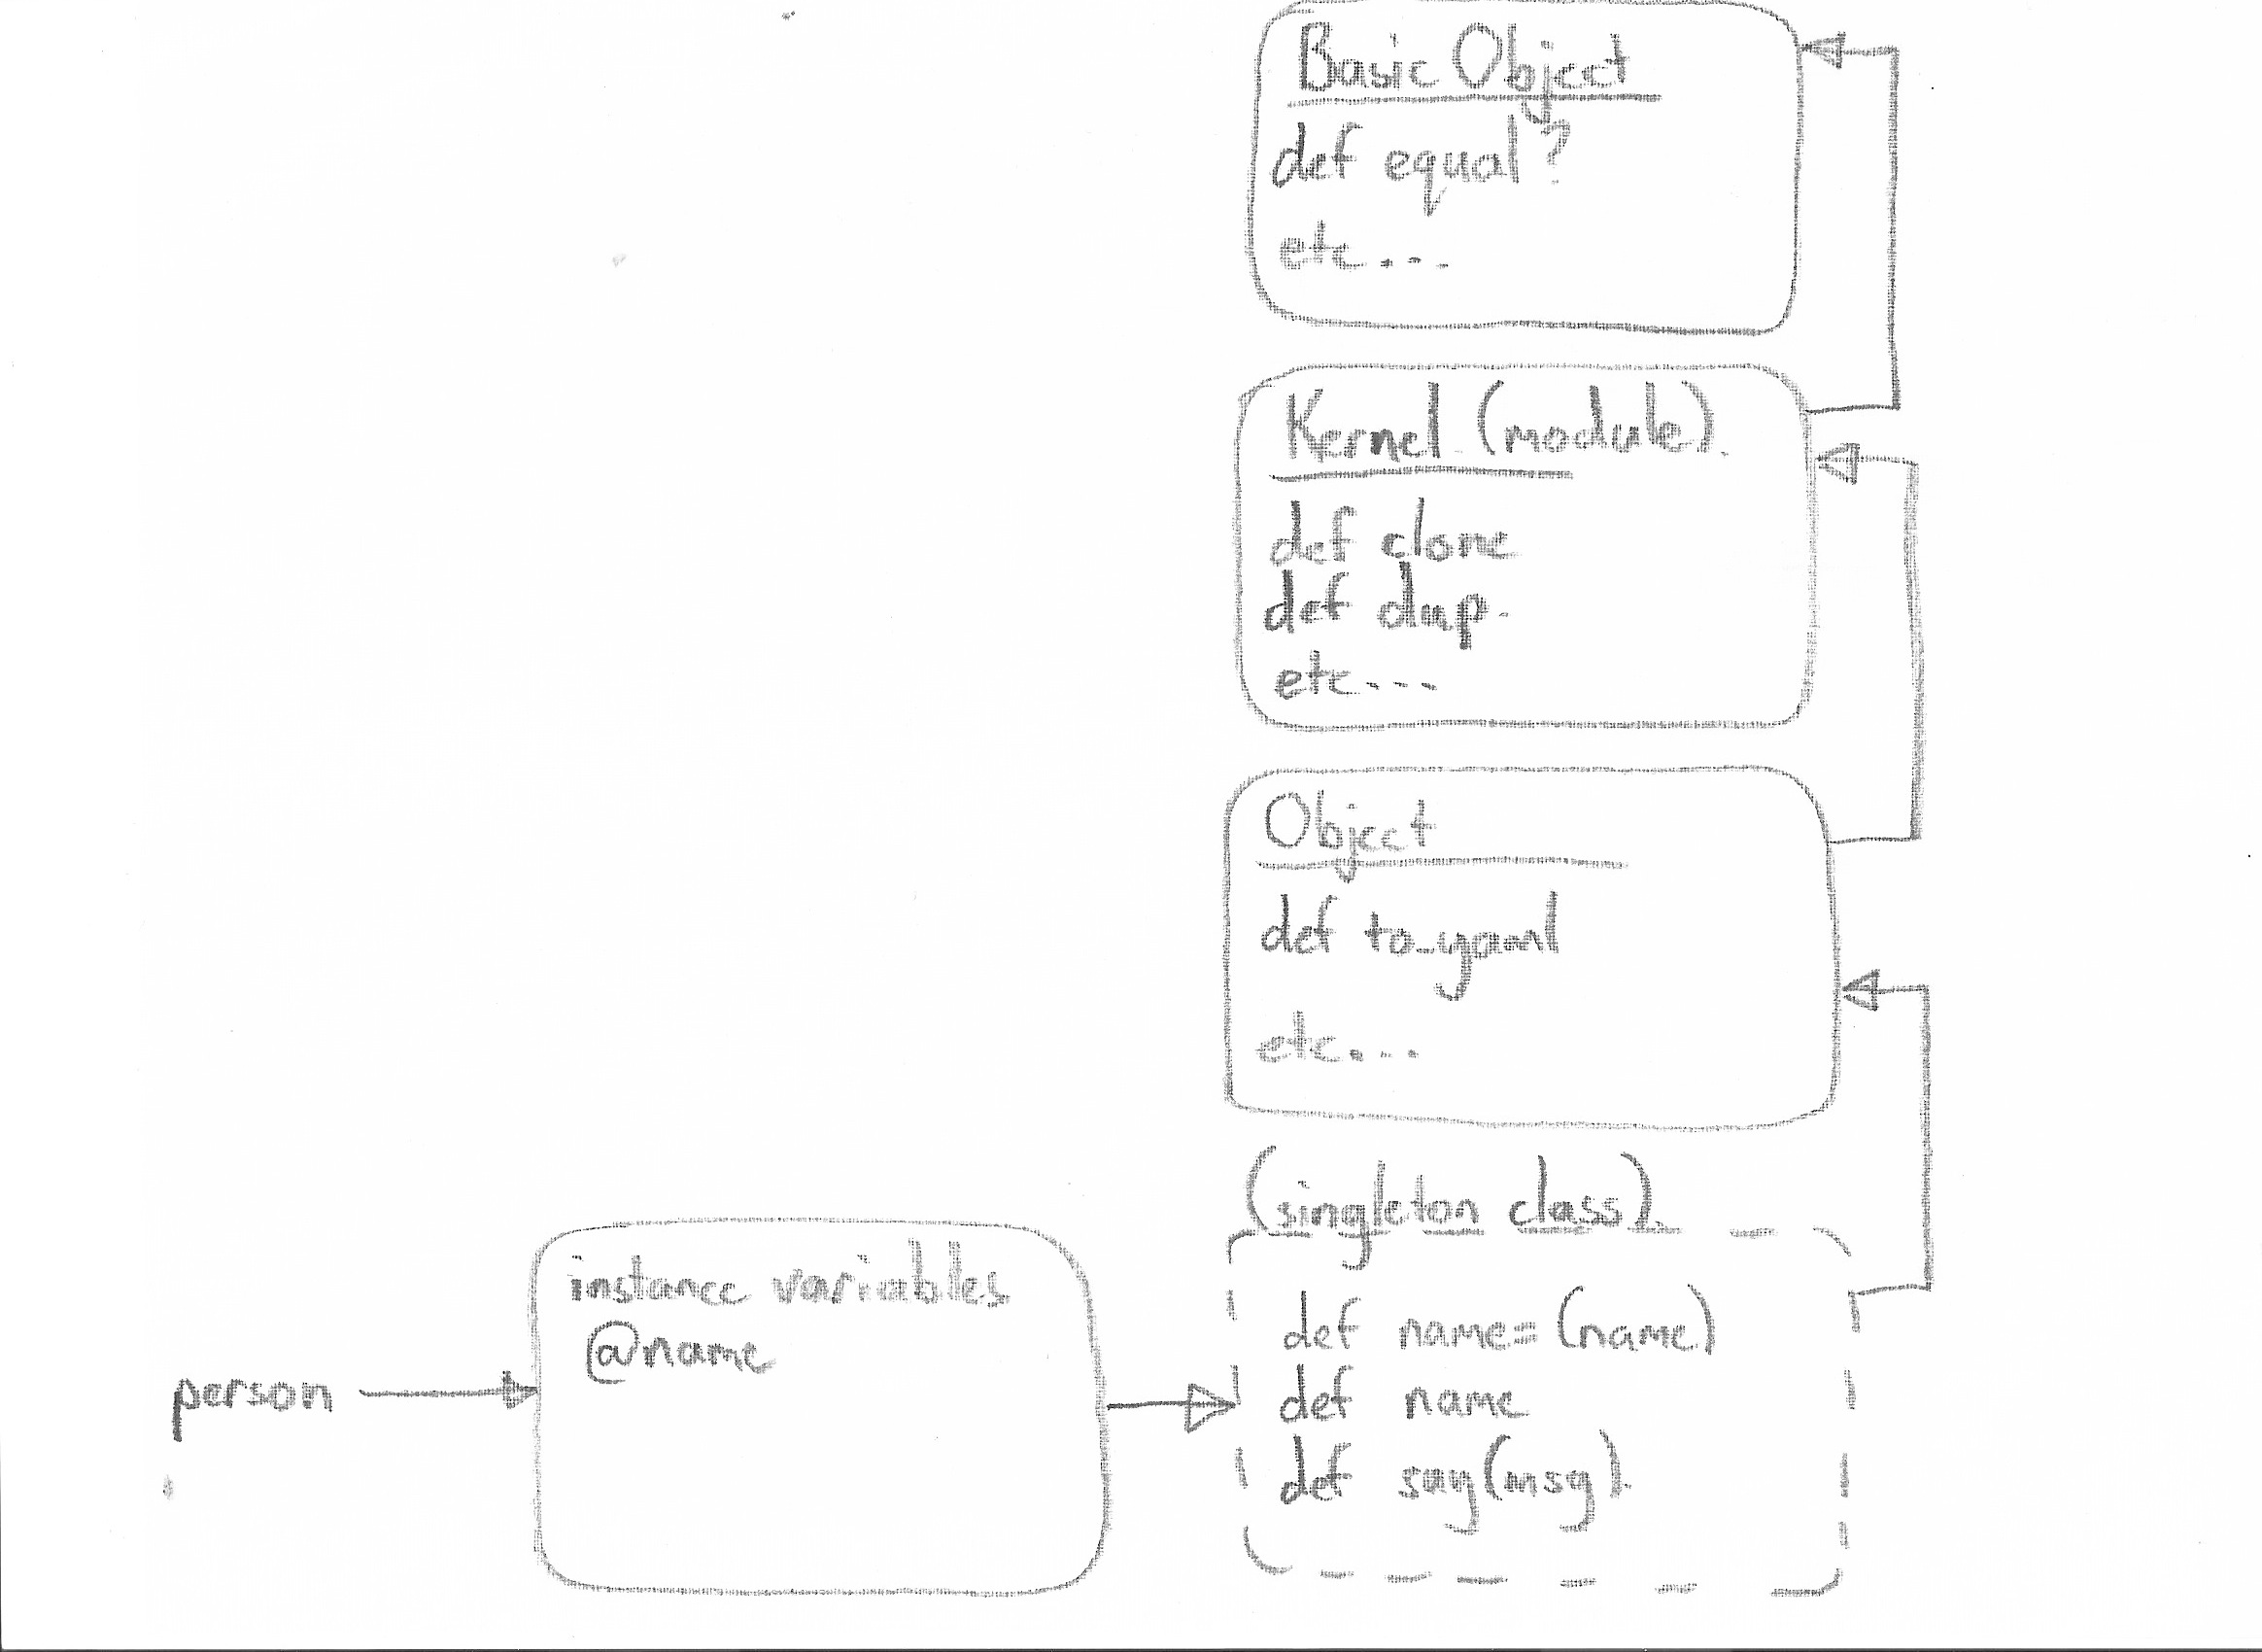 Basic Object
def equal?
etc...
Kernel (module)
def clone
def dup
etc...
Object
def to_yaml
etc...
(singleton class)
def name=(name)
def name
def say(msg)
instance variables
@name
person